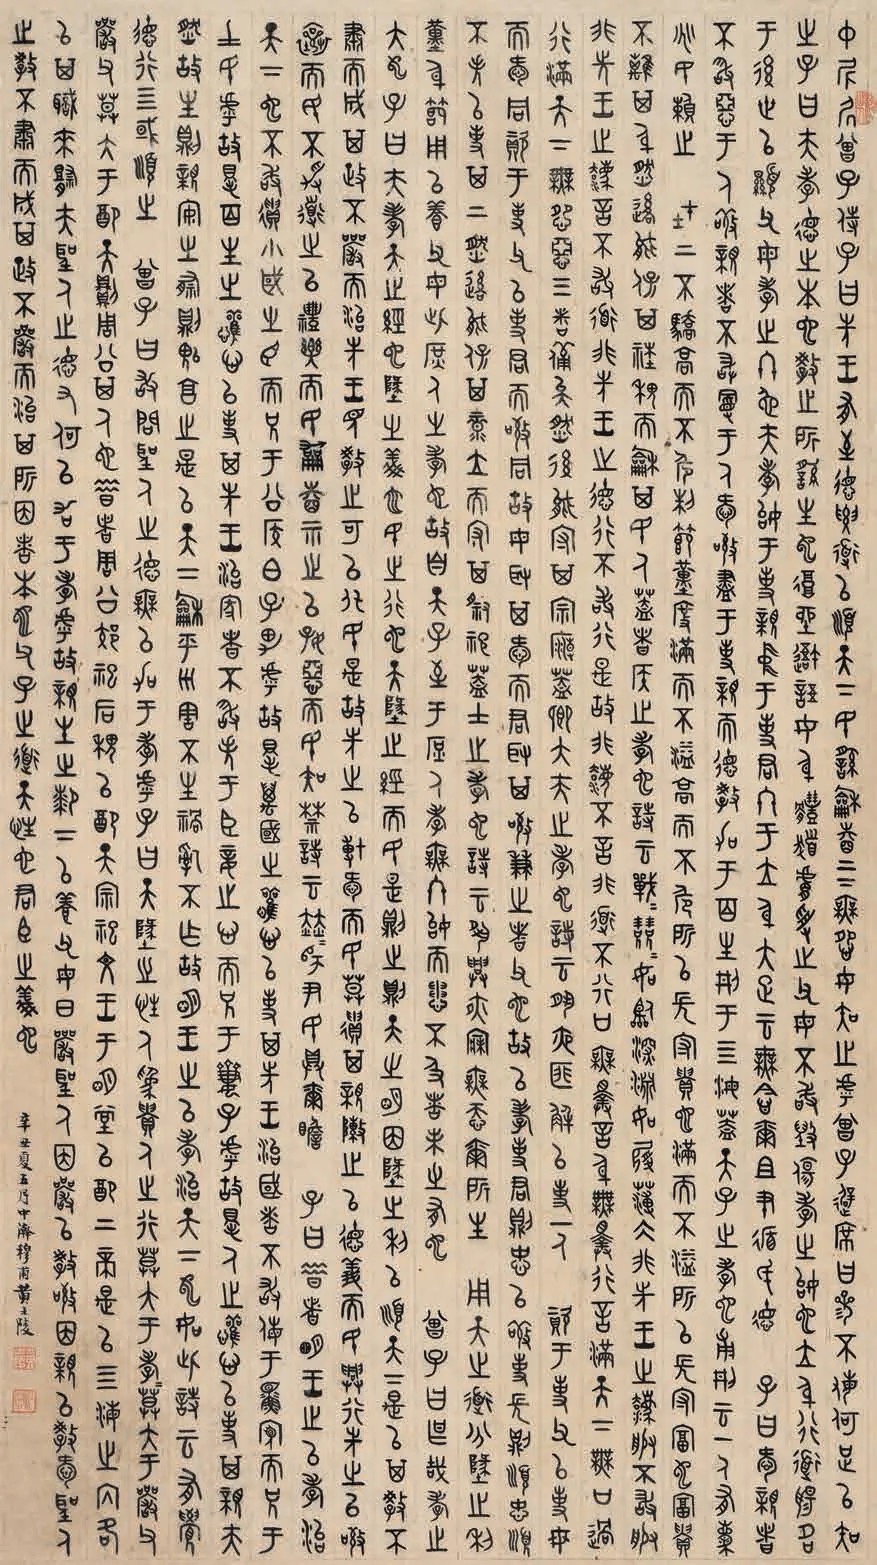 中尼凥曾子侍子曰先王有至德要道以順天下民用龢睦上下無怨女知之乎曾子避席曰參不敏何足以知
之子曰夫孝德之本也教之所繇生也復坐吾語女身體髮膚受之父母不敢毀傷孝之始也立身行道揚名
于後世以顯父母孝之終也夫孝始于事親中于事君終于立身大雅云無念爾祖聿脩厥德 子曰愛親者
不敢惡于人敬親者不敢慢于人愛敬盡于事親而德教加于百姓刑于四海蓋天子之孝也甫刑云一人有慶
兆民賴之 在上不驕高而不危制節謹度滿而不溢高而不危所以長守貴也滿而不溢所以長守富也富貴
不離其身然後能保其社稷而龢其民人蓋諸侯之孝也詩云戰戰兢兢如臨深淵如履薄冰非先王之法服不敢服
非先王之法言不敢道非先王之德行不敢行是故非法不言非道不行口無擇言身無擇行言滿天下無口過
行滿天下無怨惡三者備矣然後能守其宗廟蓋卿大夫之孝也詩云夙夜匪解以事一人 資于事父以事母
而愛同資于事父以事君而敬同故母取其愛而君取其敬兼之者父也故以孝事君則忠以敬事長則順忠順
不失以事其上然後能保其祿位而守其祭祀蓋士之孝也詩云夙興夜寐無忝爾所生 用天之道分地之利
謹身節用以養父母此庶人之孝也故自天子至于庶人孝無終始而患不及者未之有也 曾子曰甚哉孝之
大也子曰夫孝天之經也地之義也民之行也天地之經而民是則之則天之明因地之利以順天下是以其教不
肅而成其政不嚴而治先王見教之可以化民是故先之以博愛而民莫遺其親陳之以德義而民興行先之以敬
讓而民不爭道之以禮樂而民龢睦示之以好惡而民知禁詩云赫赫師尹民具爾瞻 子曰昔者明王之以孝治
天下也不敢遺小國之臣而況于公侯伯子男乎故得萬國之歡心以事其先王治國者不敢侮于鰥寡而況于
士民乎故得百姓之歡心以事其先王治家者不敢失于臣妾之心而況于妻子乎故得人之歡心以事其親夫
然故生則親安之祭則鬼享之是以天下龢平災害不生禍亂不作故明王之以孝治天下也如此詩云有覺
德行四國順之 曾子曰敢問聖人之德無以加于孝乎子曰天地之性人為貴人之行莫大于孝孝莫大于嚴父
嚴父莫大于配天則周公其人也昔者周公郊祀后稷以配天宗祀文王于明堂以配上帝是以四海之內各
以其職來助夫聖人之德又何以加于孝乎故親生之膝下以養父母日嚴聖人因嚴以教敬因親以教愛聖人
之教不肅而成其政不嚴而治其所因者本也父子之道天性也君臣之義也
辛丑夏五月中濟穆甫黃士陵